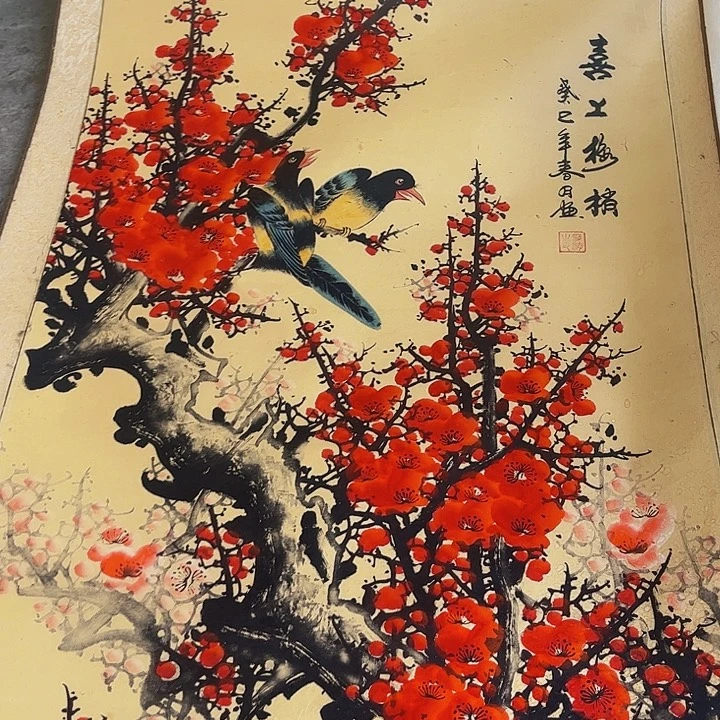 喜上梅梢
癸巳年春月